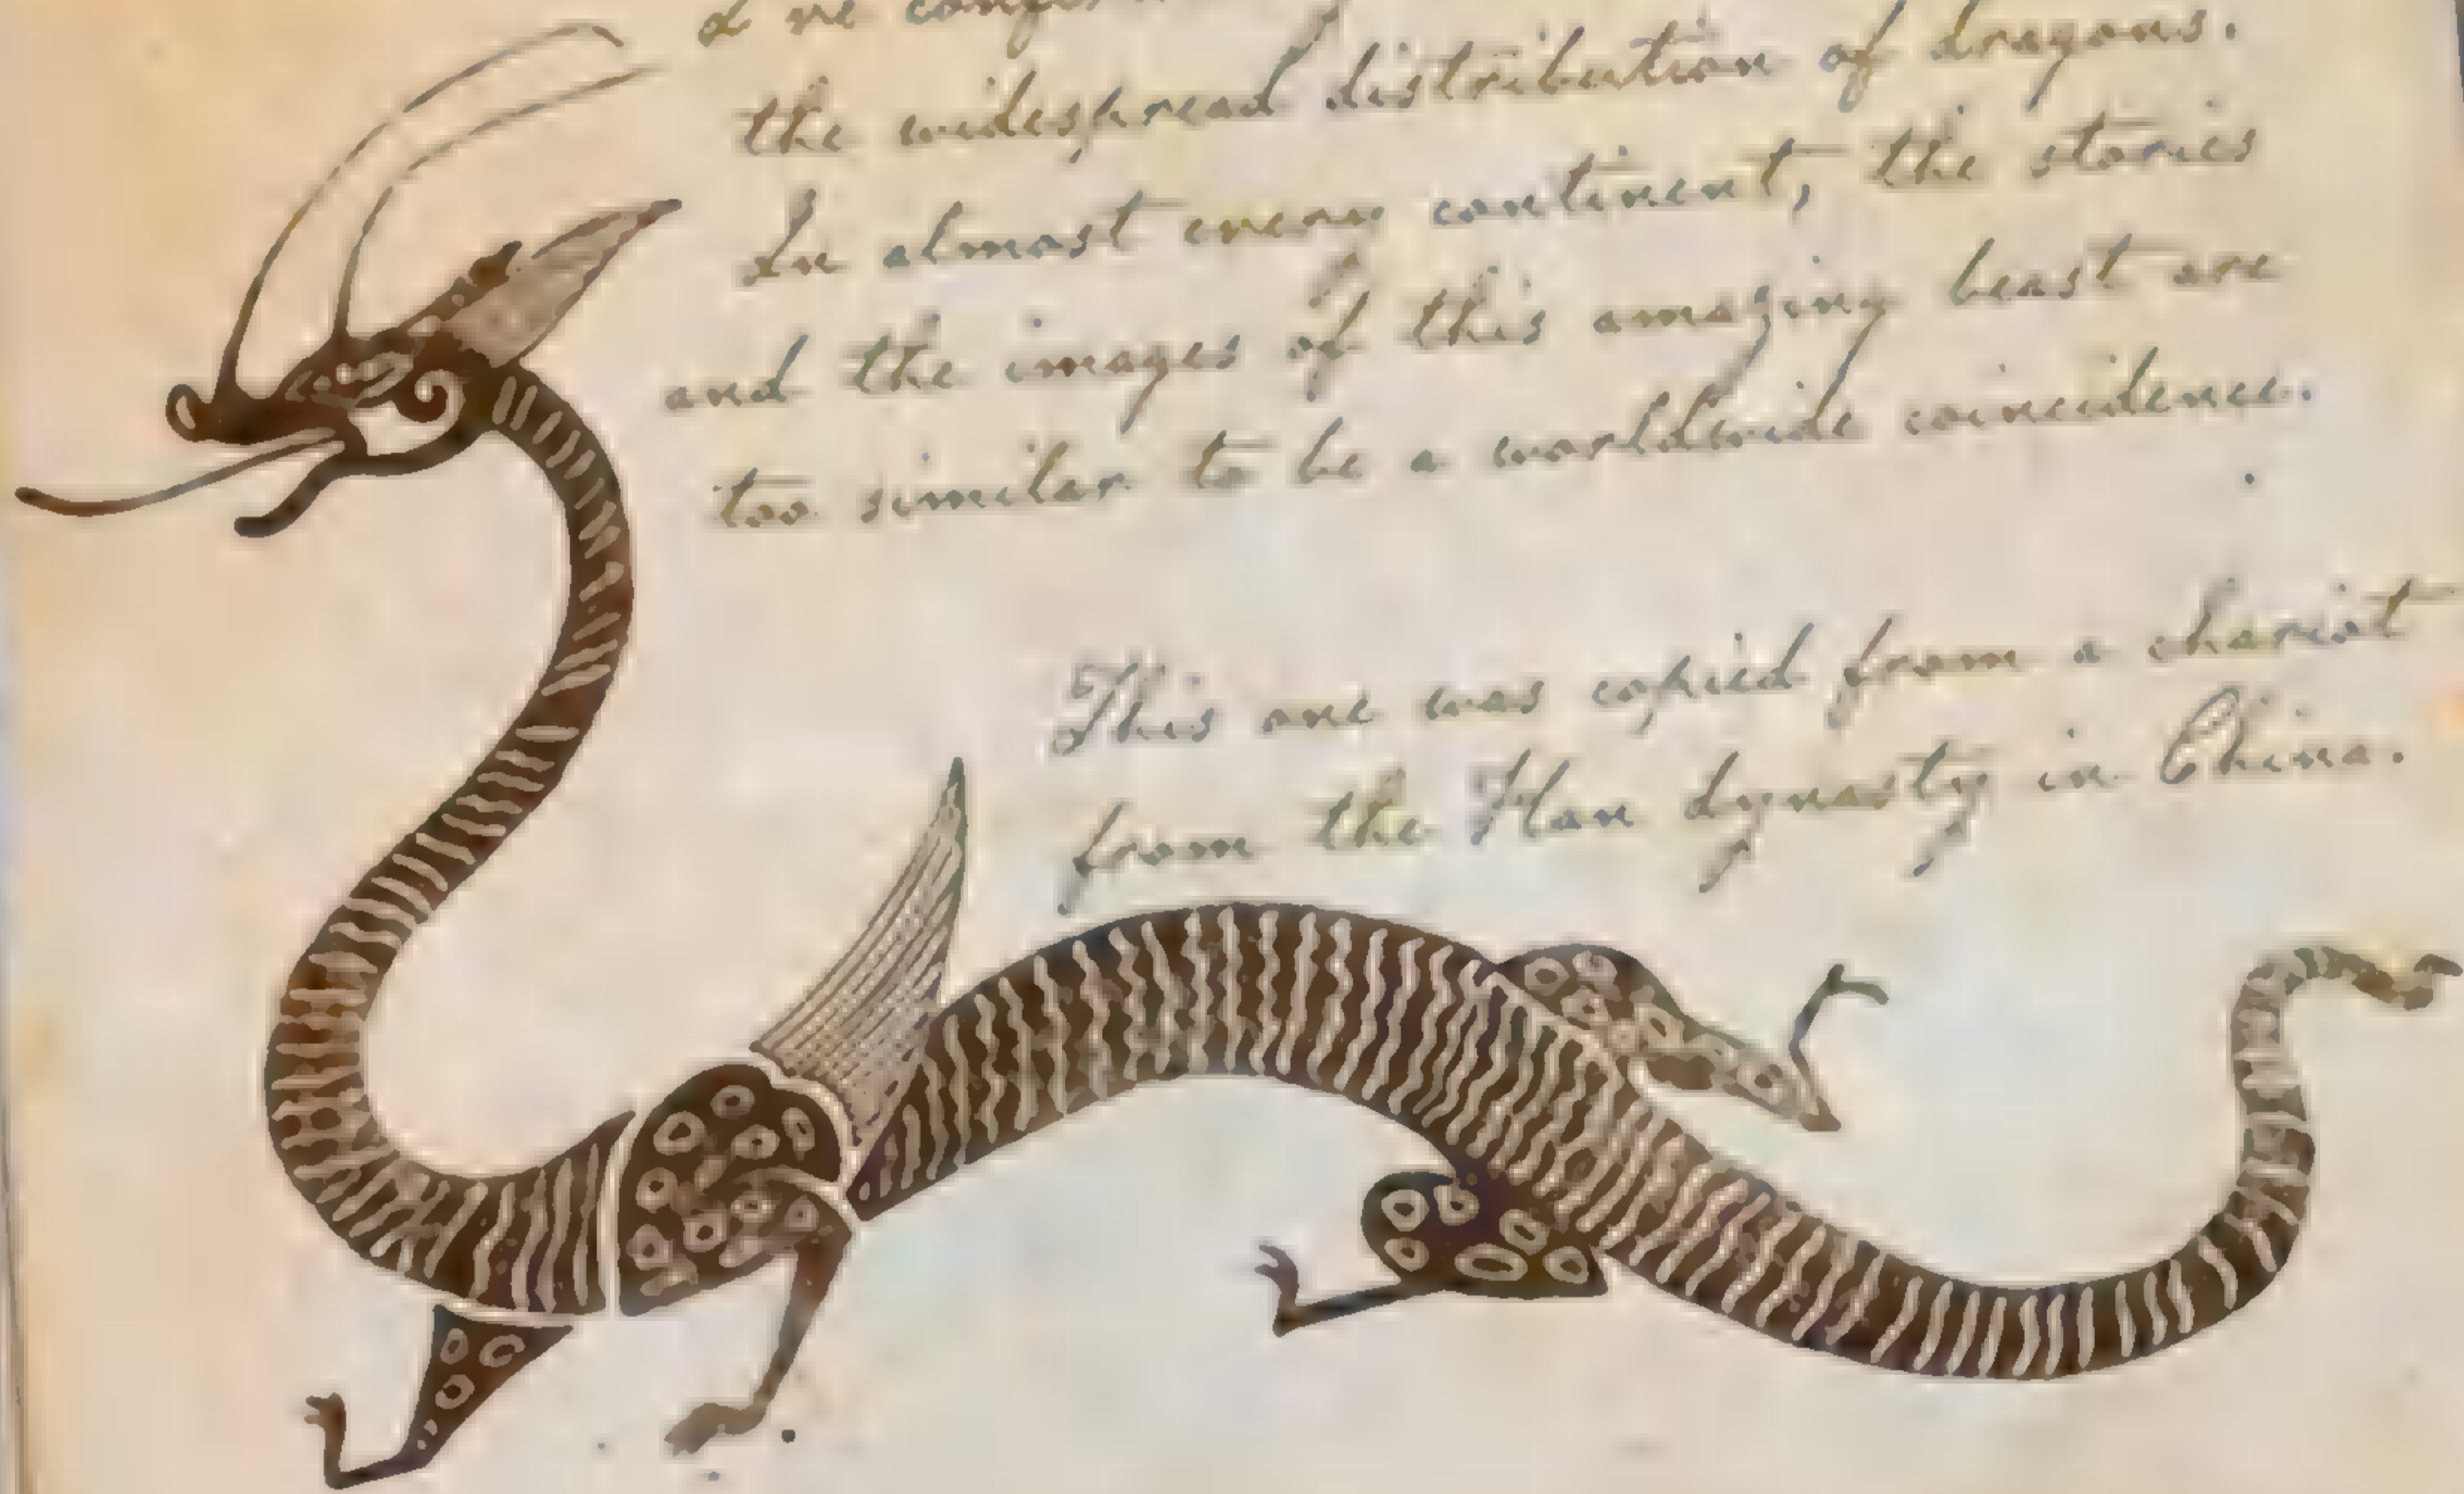 the widespread distribution of dragons.
In almost every continent, the stories
and the images of this amazing beast are
too similar to be a worldwide coincidence.
This one was copied from a chariot
from the Han dynasty in China.